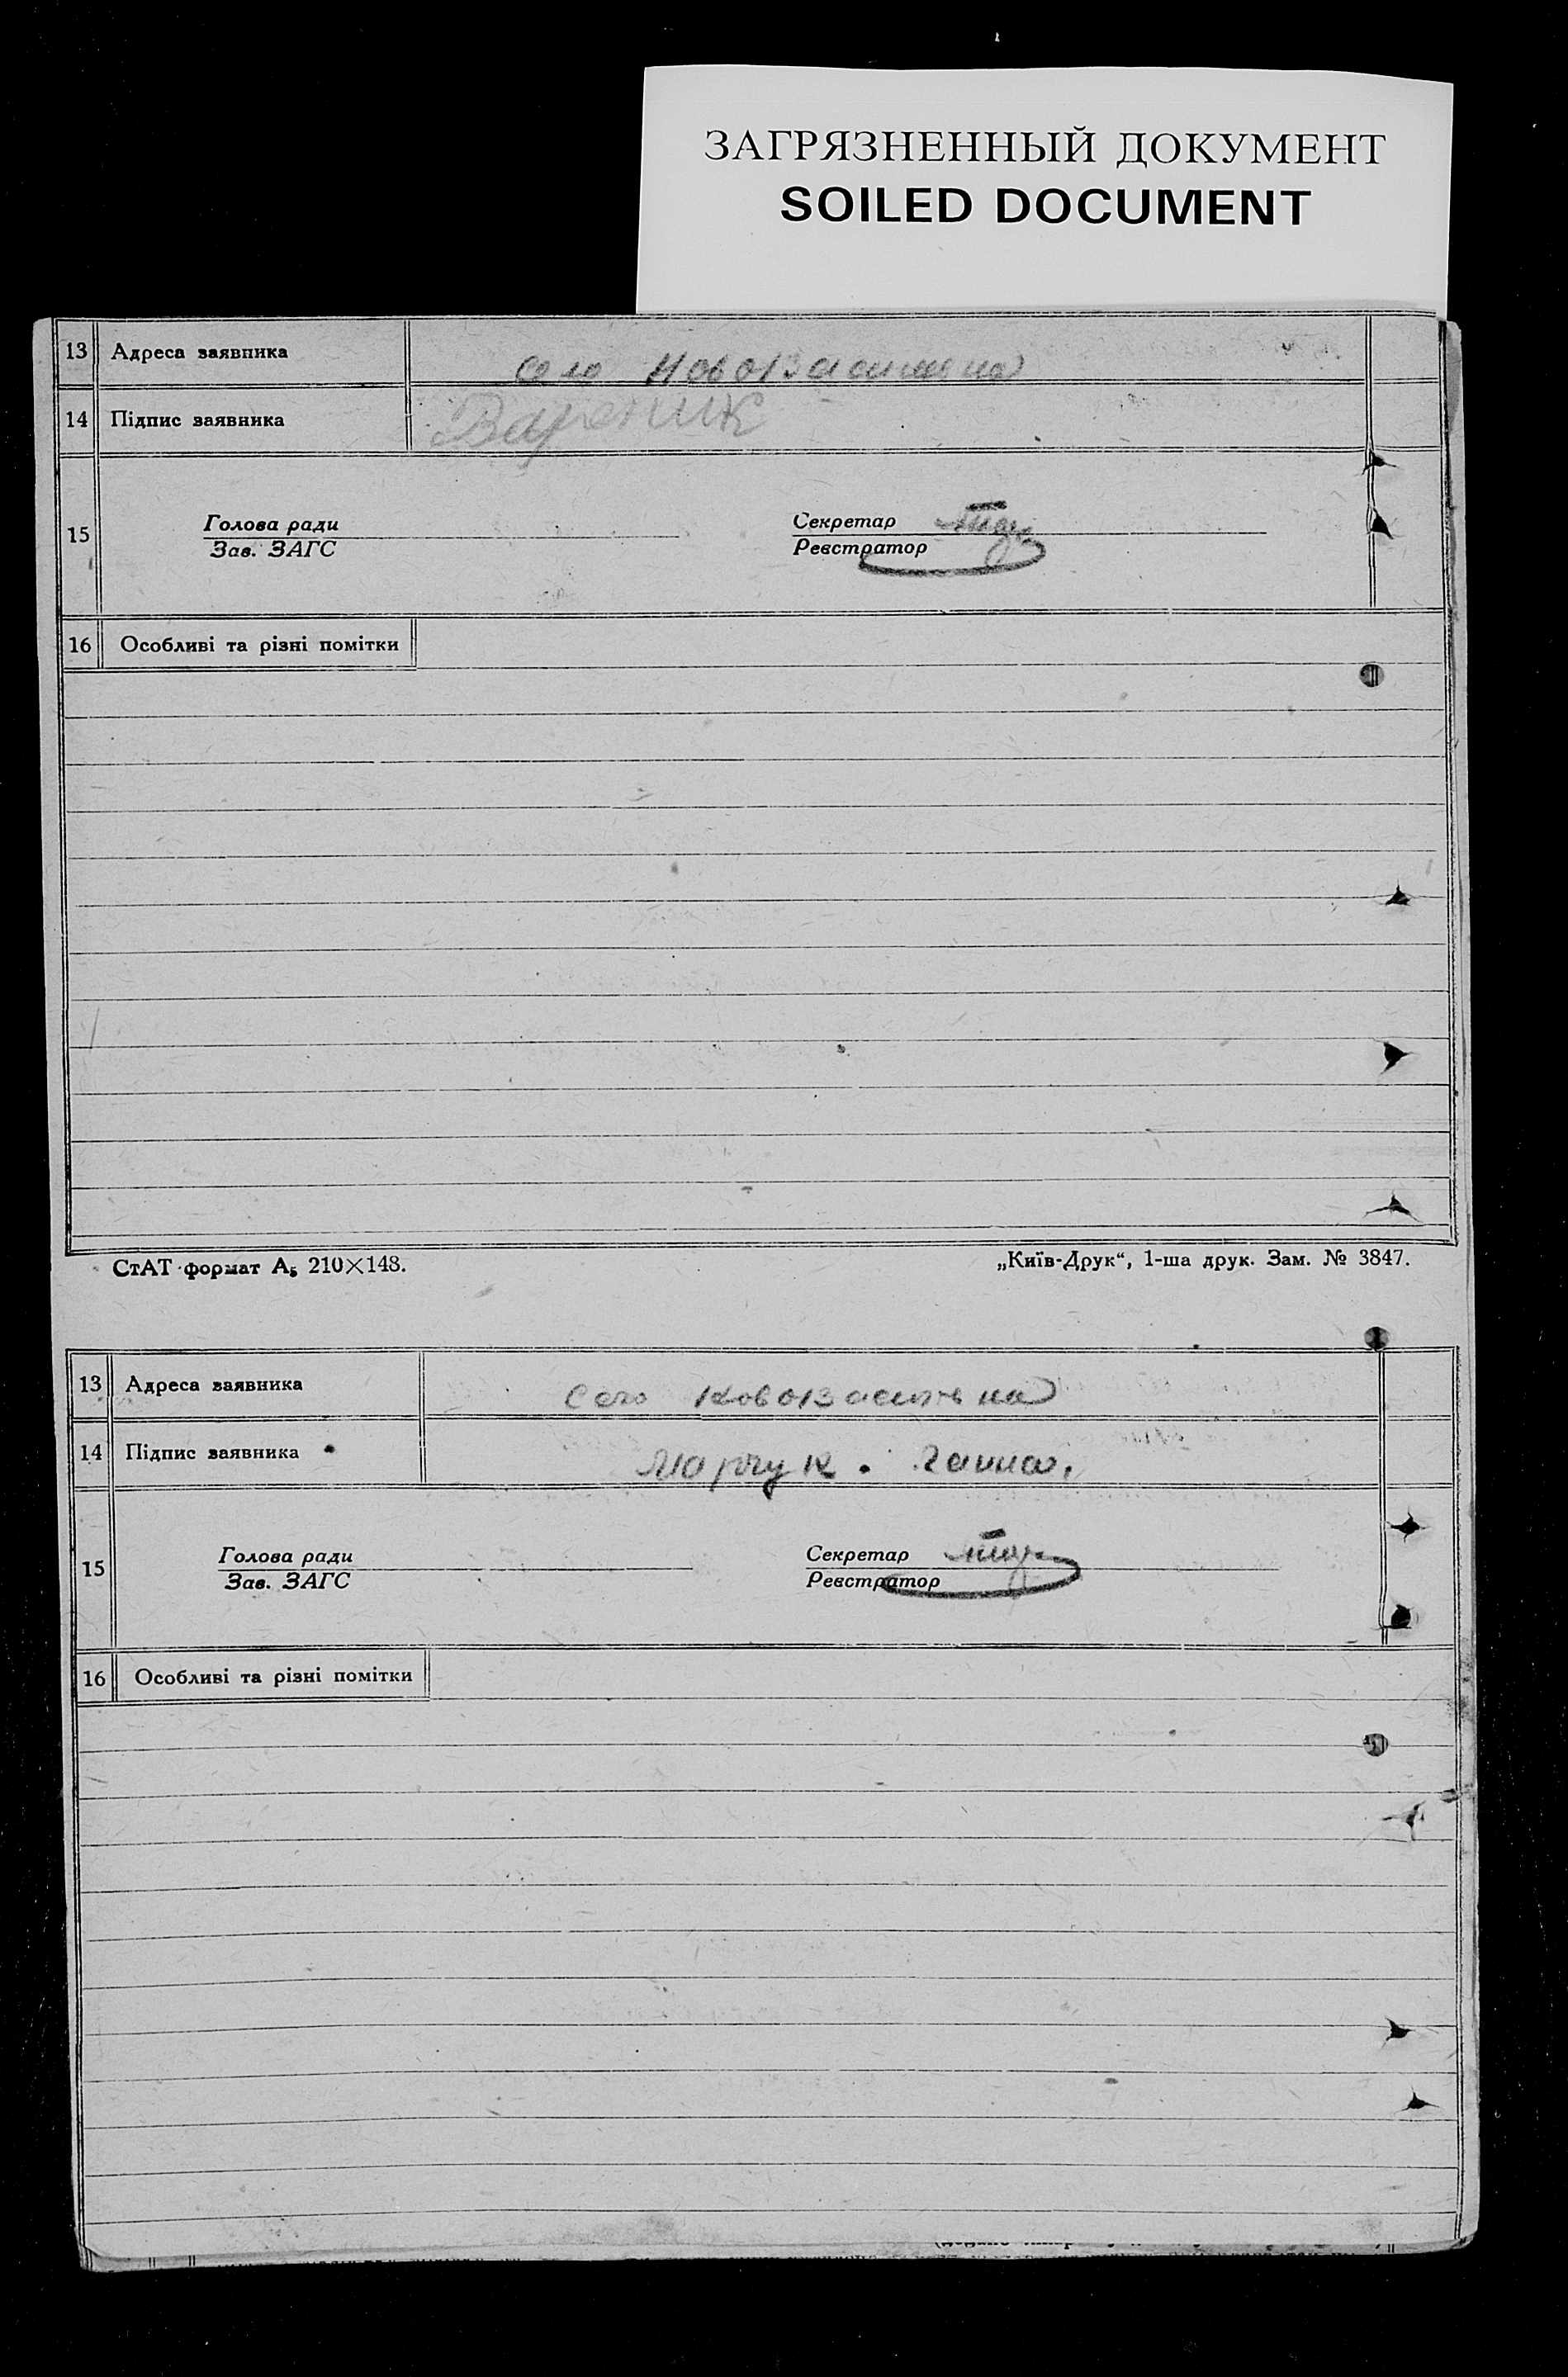 ЗАГРЯЗНЕННЫЙ ДОКУМЕНТ
SOILED DOCUMENT
13 Адреса заявника село
14 Підпис заявника Вареник
15 Голова ради Секретар
Зав. ЗАГС Реєстратор
16 Особливі та різні помітки
СтАТ формат А5 210×148. „Київ-Друк“, 1-ша друк. Зам. № 3847.
13 Адреса заявника Село
14 Підпис заявника Марчук. Ганна.
15 Голова ради Секретар
Зав. ЗАГС Реєстратор
16 Особливі та різні помітки